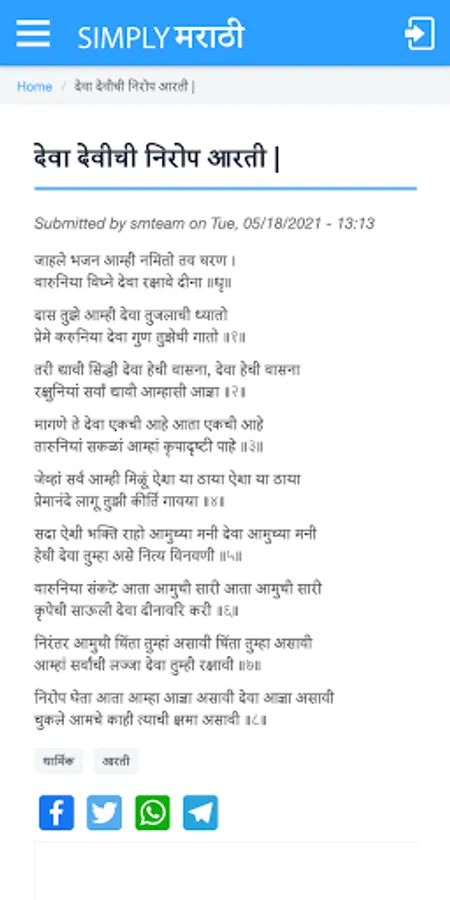 SIMPLY मराठी
Home / देवा देवीची निरोप आरती |
देवा देवीची निरोप आरती |
Submitted by smteam on Tue, 05/18/2021 - 13:13
जाहले भजन आम्ही नमितो तव चरण ।
वारुनिया विघ्ने देवा रक्षावे दीना ॥धृ॥
दास तुझे आम्ही देवा तुजलाची ध्यातो
प्रेमे करुनिया देवा गुण तुझेची गातो ॥१॥
तरी द्यावी सिद्धी देवा हेची वासना, देवा हेची वासना
रक्षुनियां सर्वां द्यावी आम्हासी आज्ञा ॥२॥
मागणे ते देवा एकची आहे आता एकची आहे
तारुनियां सकळां आम्हां कृपादृष्टी पाहे ॥३॥
जेव्हां सर्व आम्ही मिळूं ऐशा या ठाया ऐशा या ठाया
प्रेमानंदे लागू तुझी कीर्ति गावया ॥४॥
सदा ऐशी भक्ति राहो आमुच्या मनी देवा आमुच्या मनी
हेची देवा तुम्हा असे नित्य विनवणी ॥५॥
वारुनिया संकटे आता आमुची सारी आता आमुची सारी
कृपेची साऊली देवा दीनावरि करी ॥६॥
निरंतर आमुची चिंता तुम्हां असावी चिंता तुम्हा असावी
आम्हां सर्वांची लज्जा देवा तुम्ही रक्षावी ॥७॥
निरोप घेता आता आम्हा आज्ञा असावी देवा आज्ञा असावी
चुकले आमचे काही त्याची क्षमा असावी ॥८॥
धार्मिक आरती